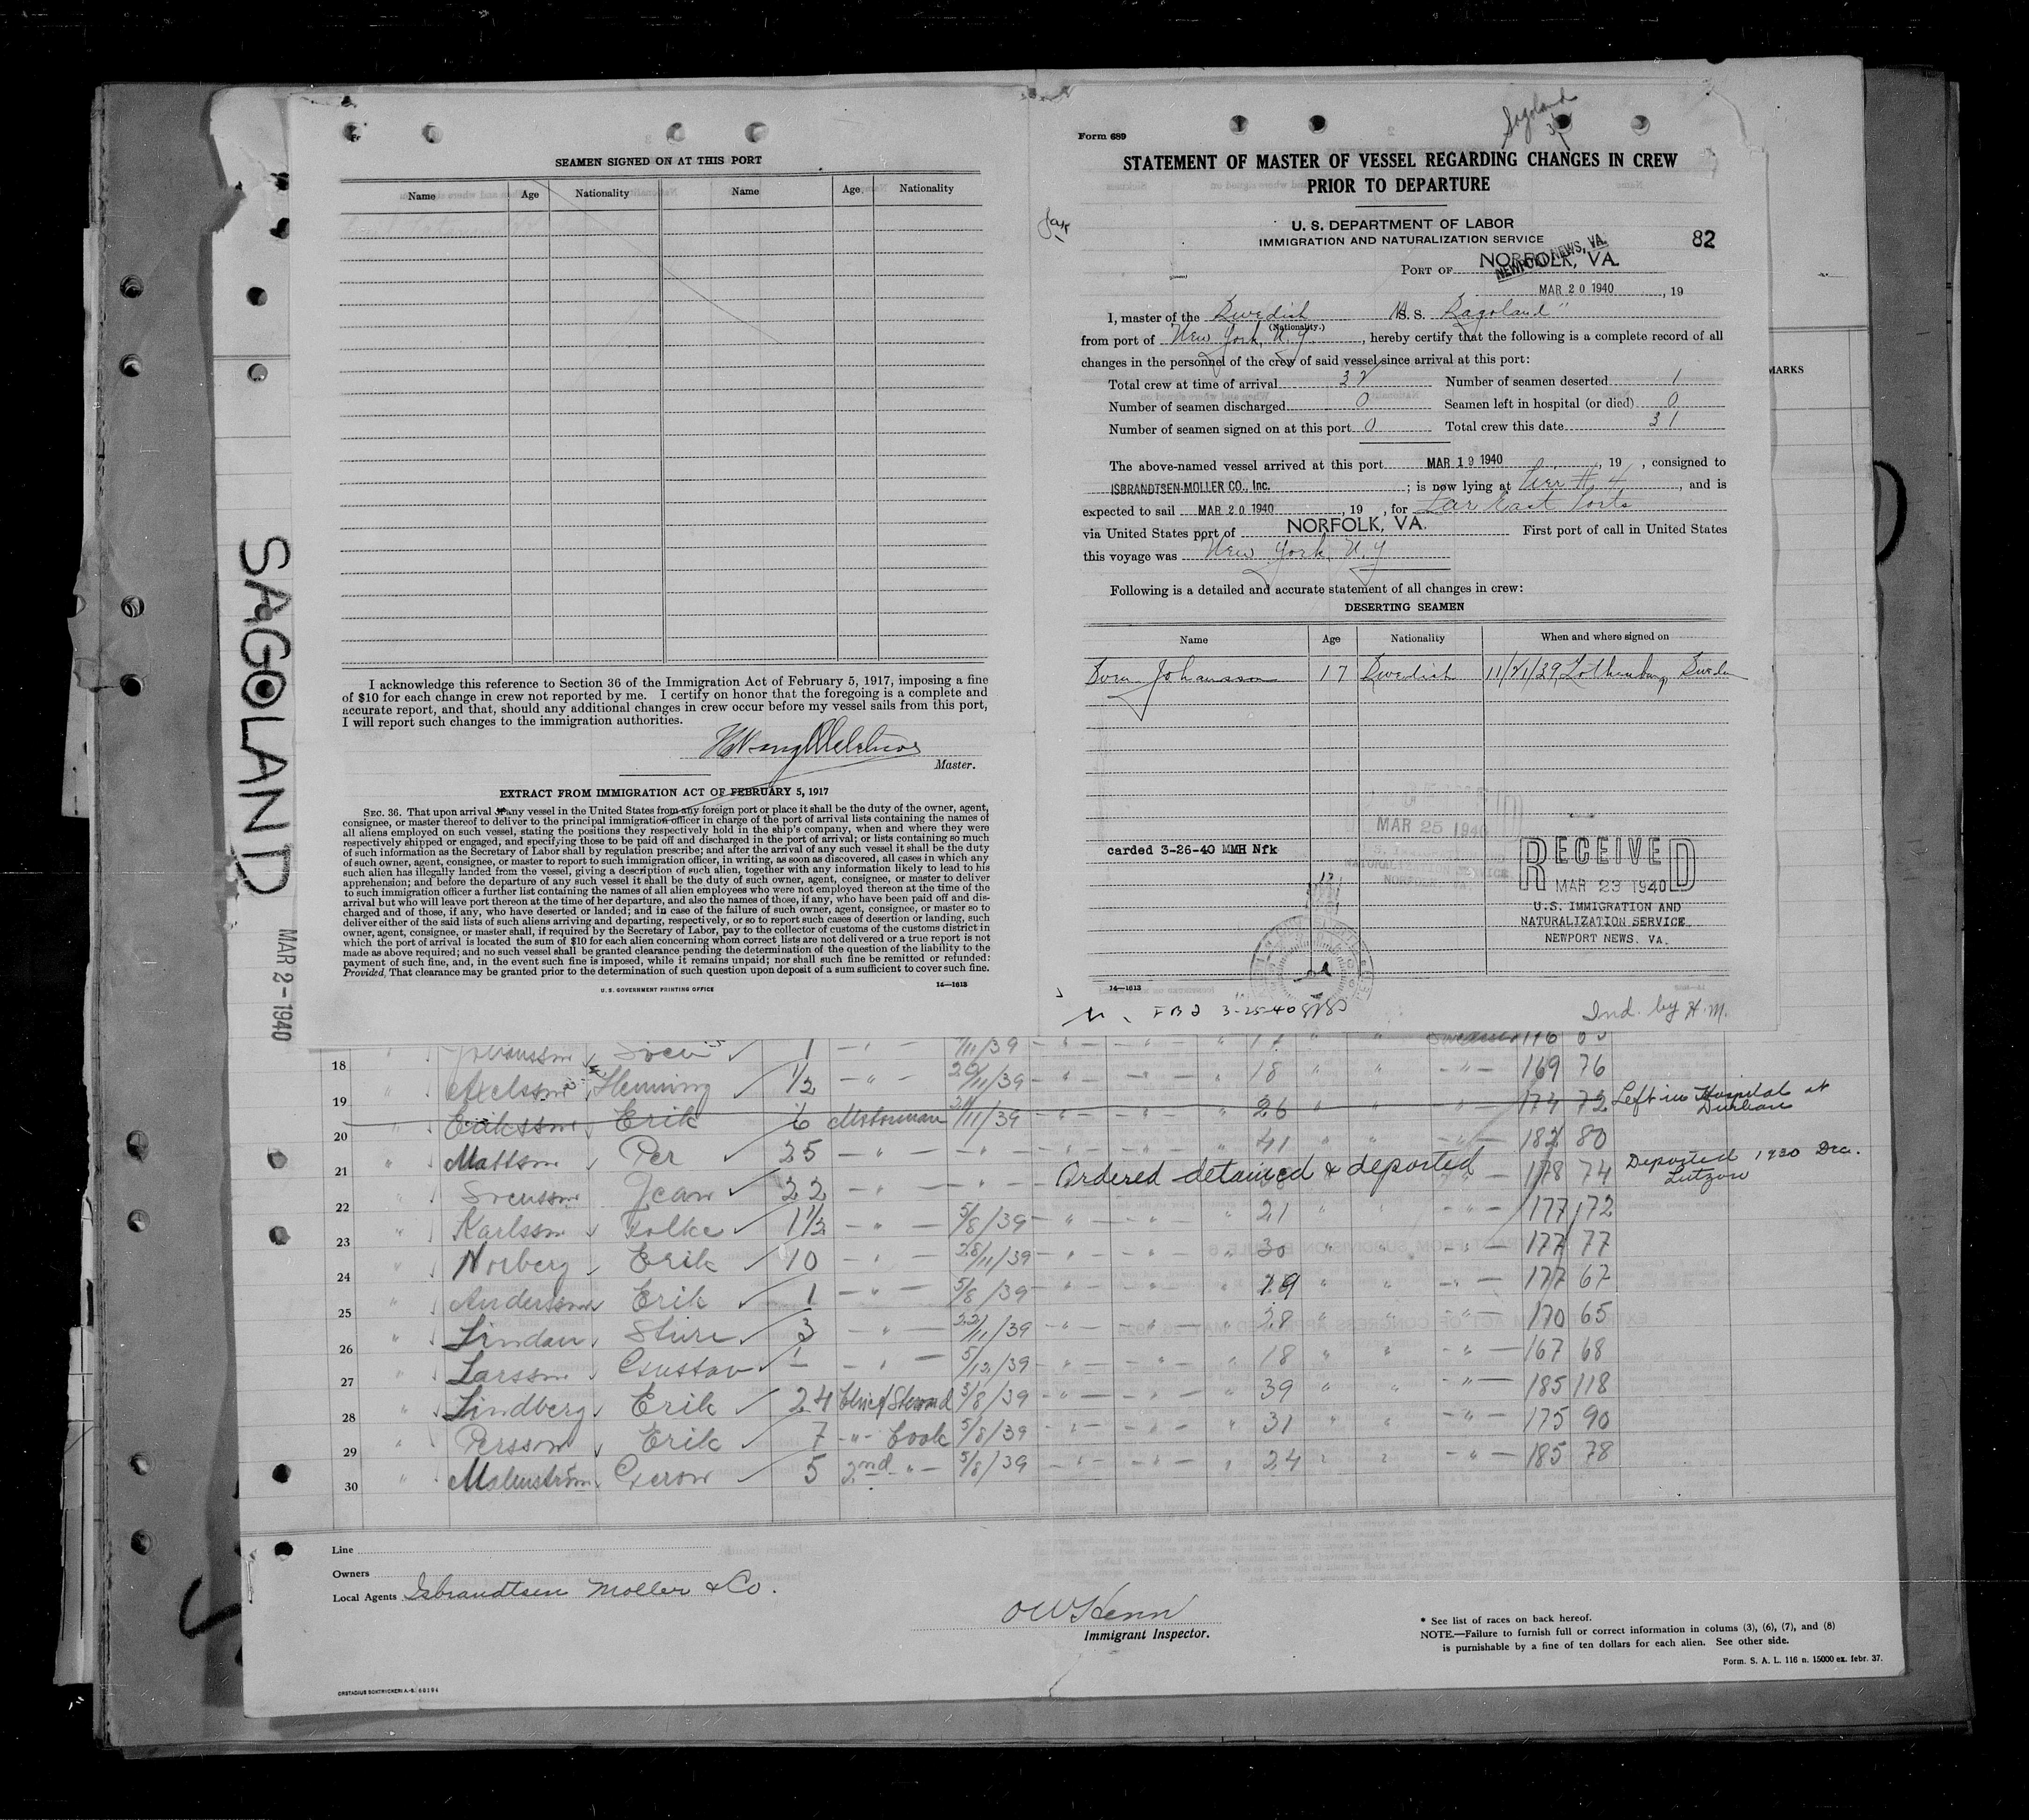 SEAMEN SIGNED ON AT THIS PORT
Name Age Nationality Name Age Nationality
I acknowledge this reference to Section 36 of the Immigration Act of February 5, 1917, imposing a fine
of $10 for each change in crew not reported by me. I certify on honor that the foregoing is a complete and
accurate report, and that, should any additional changes in crew occur before my vessel sails from this port,
I will report such changes to the immigration authorities.
Master.
EXTRACT FROM IMMIGRATION ACT OF FEBRUARY 5, 1917
SEC. 36. That upon arrival of any vessel in the United States from any foreign port or place it shall be the duty of the owner, agent,
consignee, or master thereof to deliver to the principal immigration officer in charge of the port of arrival lists containing the names of
all aliens employed on such vessel, stating the positions they respectively hold in the ship's company, when and where they were
respectively shipped or engaged, and specifying those to be paid off and discharged in the port of arrival; or lists containing so much
of such information as the Secretary of Labor shall by regulation prescribe; and after the arrival of any such vessel it shall be the duty
of such owner, agent, consignee, or master to report to such immigration officer, in writing, as soon as discovered, all cases in which any
such alien has illegally landed from the vessel, giving a description of such alien, together with any information likely to lead to his
apprehension; and before the departure of any such vessel it shall be the duty of such owner, agent, consignee, or master to deliver
to such immigration officer a further list containing the names of all alien employees who were not employed thereon at the time of the
arrival but who will leave port thereon at the time of her departure, and also the names of those, if any, who have been paid off and dis-
charged and of those, if any, who have deserted or landed; and in case of the failure of such owner, agent, consignee, or master so to
deliver either of the said lists of such aliens arriving and departing, respectively, or so to report such cases of desertion or landing, such
owner, agent, consignee, or master shall, if required by the Secretary of Labor, pay to the collector of customs of the customs district in
which the port of arrival is located the sum of $10 for each alien concerning whom correct lists are not delivered or a true report is not
made as above required; and no such vessel shall be granted clearance pending the determination of the question of the liability to the
payment of such fine, and, in the event such fine is imposed, while it remains unpaid; nor shall such fine be remitted or refunded:
Provided, That clearance may be granted prior to the determination of such question upon deposit of a sum sufficient to cover such fine.
U. S. GOVERNMENT PRINTING OFFICE 14—1613
SAGOLAND
MAR 2 - 1940
Sagoland
Form 689
STATEMENT OF MASTER OF VESSEL REGARDING CHANGES IN CREW
PRIOR TO DEPARTURE
U. S. DEPARTMENT OF LABOR
IMMIGRATION AND NATURALIZATION SERVICE
82
NEWPORT NEWS, VA.
PORT OF NORFOLK, VA.
MAR 20 1940, 19
I, master of the Swedish M. S. Sagoland"
(Nationality.)
from port of New York, N. Y., hereby certify that the following is a complete record of all
changes in the personnel of the crew of said vessel since arrival at this port:
Total crew at time of arrival 32 Number of seamen deserted 1
Number of seamen discharged 0 Seamen left in hospital (or died) 0
Number of seamen signed on at this port 0 Total crew this date 31
The above-named vessel arrived at this port MAR 19 1940, 19 , consigned to
ISBRANDTSEN-MOLLER CO., Inc. ; is now lying at Pier # 4, and is
expected to sail MAR 20 1940, 19 , for Far East Ports
via United States port of NORFOLK, VA. First port of call in United States
this voyage was New York, N. Y
Following is a detailed and accurate statement of all changes in crew:
DESERTING SEAMEN
Name Age Nationality When and where signed on
Sven Johansson 17 Swedish 11/21/39, Gothenburg, Sweden
MAR 25 1940
NATURALIZATION SERVICE
NORFOLK, VA.
carded 3-26-40 MMH Nfk
RECEIVED
MAR 23 1940
U. S. IMMIGRATION AND
NATURALIZATION SERVICE
NEWPORT NEWS, VA.
14—1613
3-25-40
Ind. by H.M.
MARKS
18 Johansson Sven 1 /11/39 17 116
19 Axelsson Henning 1/2 18 169 76
20 Eriksson Erik 6 Motorman 26 174 72 Left in Hospital at Durban
21 Mattsson Per 25 41 182 80
22 Svensson Jean 22 Ordered detained & deported 178 74 Deported 1920 Dec. Lutzow
23 Karlsson Folke 1 1/2 5/8/39 21 177 172
24 Norberg Erik 10 28/11/39 30 177 77
25 Andersson Erik 1 5/8/39 29 177 67
26 Lindau Sture 3 22/11/39 28 170 65
27 Larsson Gustav 1 5/12/39 18 167 68
28 Lindberg Erik 24 Chief Steward 3/8/39 39 185 118
29 Persson Erik 7 -"- Cook 5/8/39 31 175 90
30 Malmström Gerow 5 2nd -"- 5/8/39 24 185 78
Line
Owners
Local Agents Isbrandtsen Moller & Co.
Immigrant Inspector.
* See list of races on back hereof.
NOTE.—Failure to furnish full or correct information in colums (3), (6), (7), and (8)
is purnishable by a fine of ten dollars for each alien. See other side.
Form. S. A. L. 116 n. 15000 ex. febr. 37.